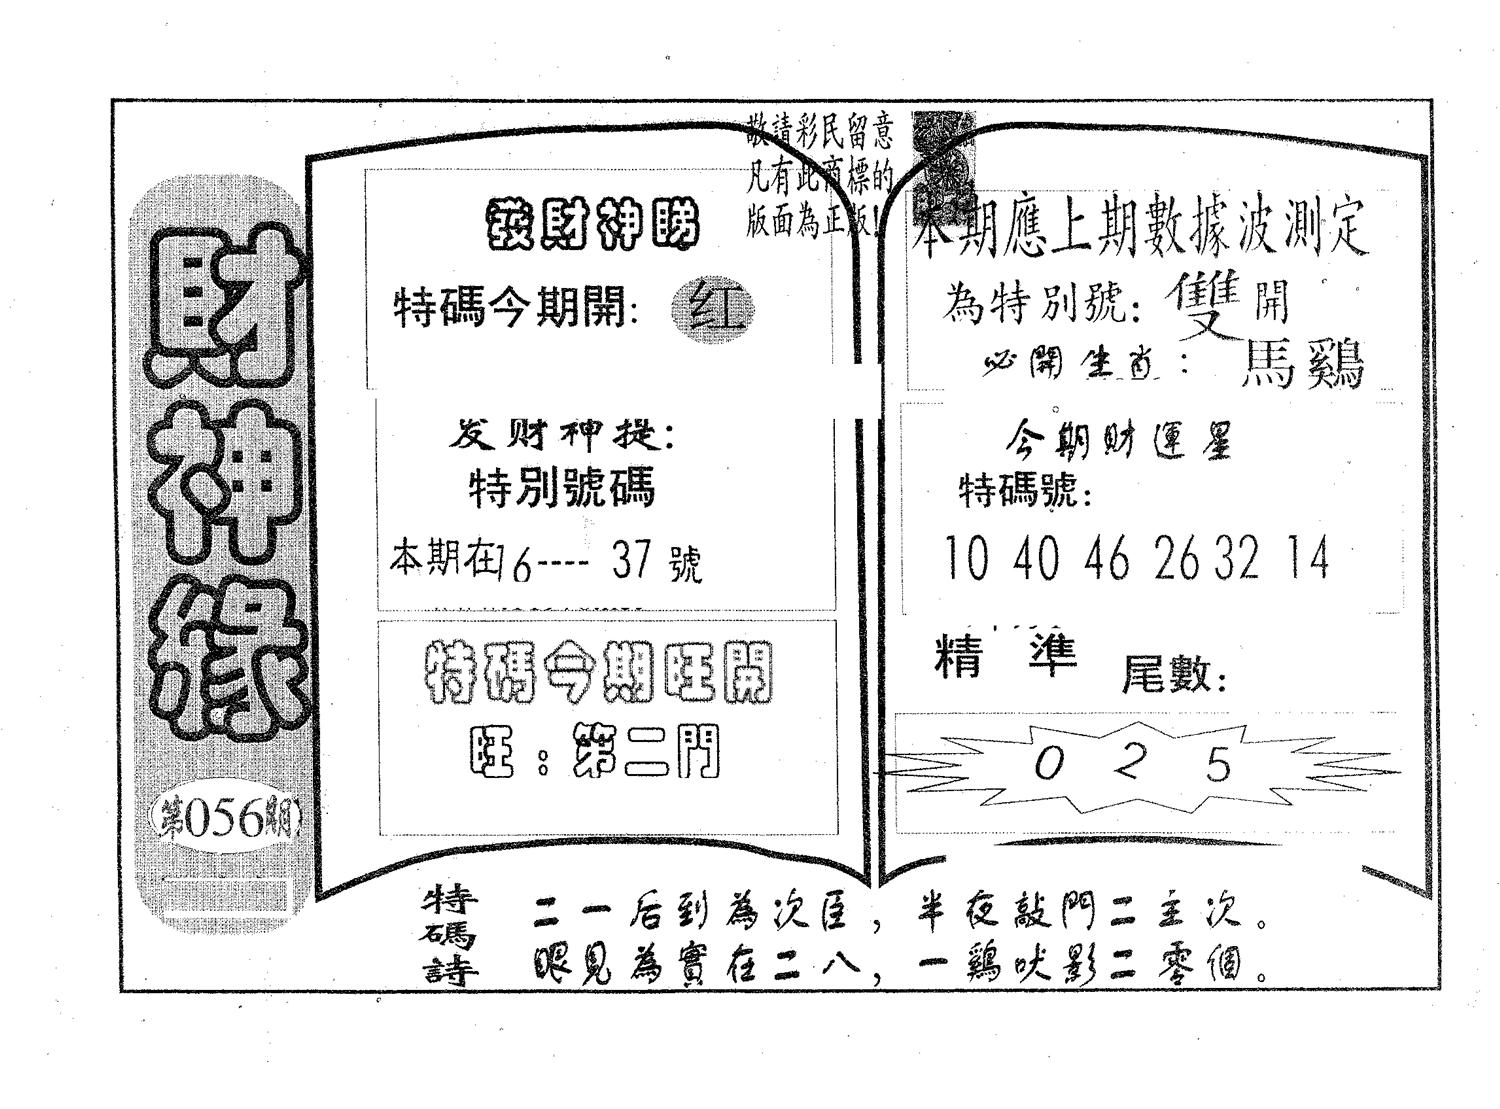 財神緣
第056期
敬請彩民留意
凡有此商標的
版面為正版!
發財神賜
特碼今期開:红
发财神提:
特別號碼
本期在16----37號
特碼今期旺開
旺:第二門
本期應上期數據波測定
為特別號:雙開
必開生肖:馬鷄
今期財運星
特碼號:
10 40 46 26 32 14
精準尾數:
0 2 5
特碼詩
二一后到為次臣,半夜敲門二主次。
眼見為實在二八,一鷄吠影二零個。